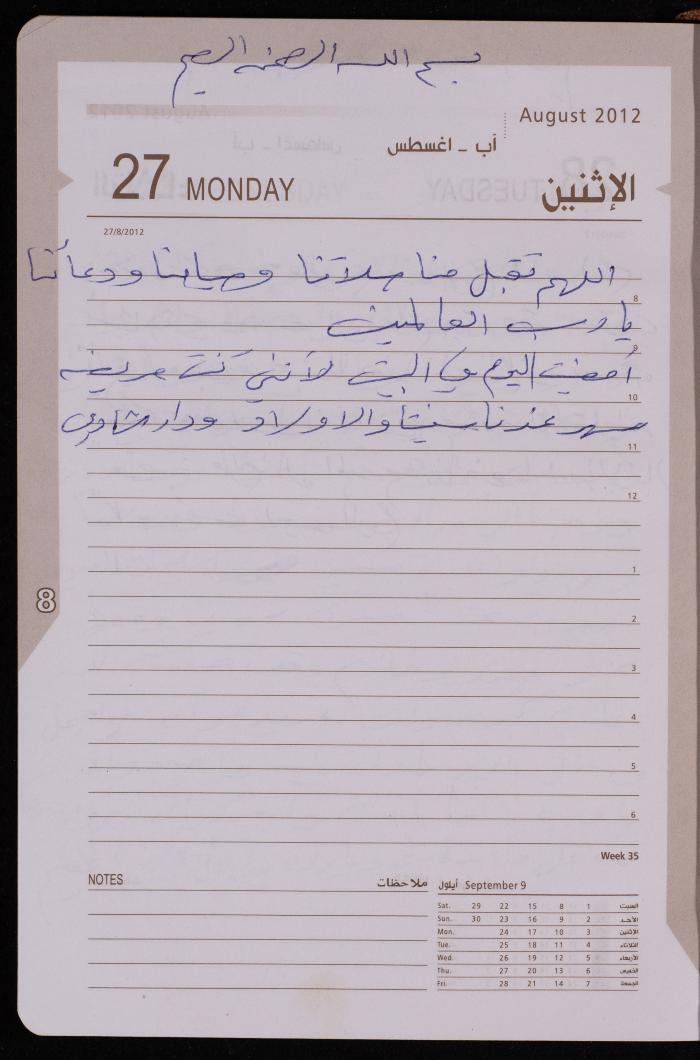 بسم الله الرحمن الرحيم
August 2012
آب - اغسطس
27 MONDAY
الإثنين
27/8/2012
اللهم تقبل منا صلاتنا وصيامنا ودعائنا
8
يا رب العالمين
9
أمضيت اليوم في البيت لأنني كنت مريضه
10
سهر عندنا والاولاد ودار
11
12
1
8
2
3
4
5
6
Week 35
NOTES ملاحظات
أيلول September 9
Sat. 29 22 15 8 1 السبت
Sun. 30 23 16 9 2 الأحد
Mon. 24 17 10 3 الإثنين
Tue. 25 18 11 4 الثلاثاء
Wed. 26 19 12 5 الأربعاء
Thu. 27 20 13 6 الخميس
Fri. 28 21 14 7 الجمعة